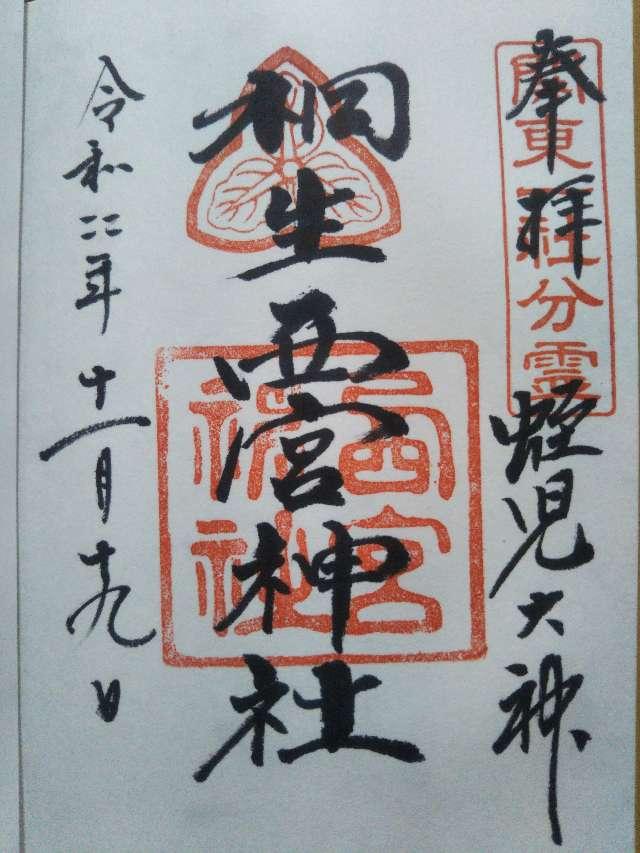 奉拝
関東一社分霊
蛭児大神
桐生西宮神社
西宮神社
令和二年十一月十九日